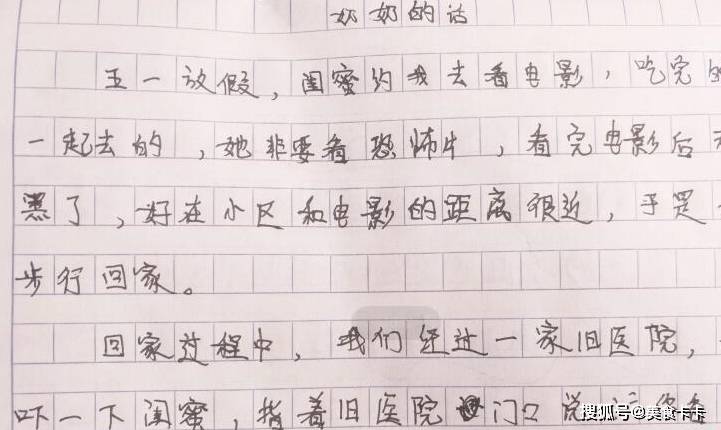 奶奶的话
五一放假，闺蜜约我去看电影，吃完
一起去的，她非要看恐怖片，看完电影后
黑了，好在小区和电影的距离很近，于是
步行回家。
回家过程中，我们经过一家旧医院，
吓一下闺蜜，指着旧医院门口说
搜狐号@美食卡卡